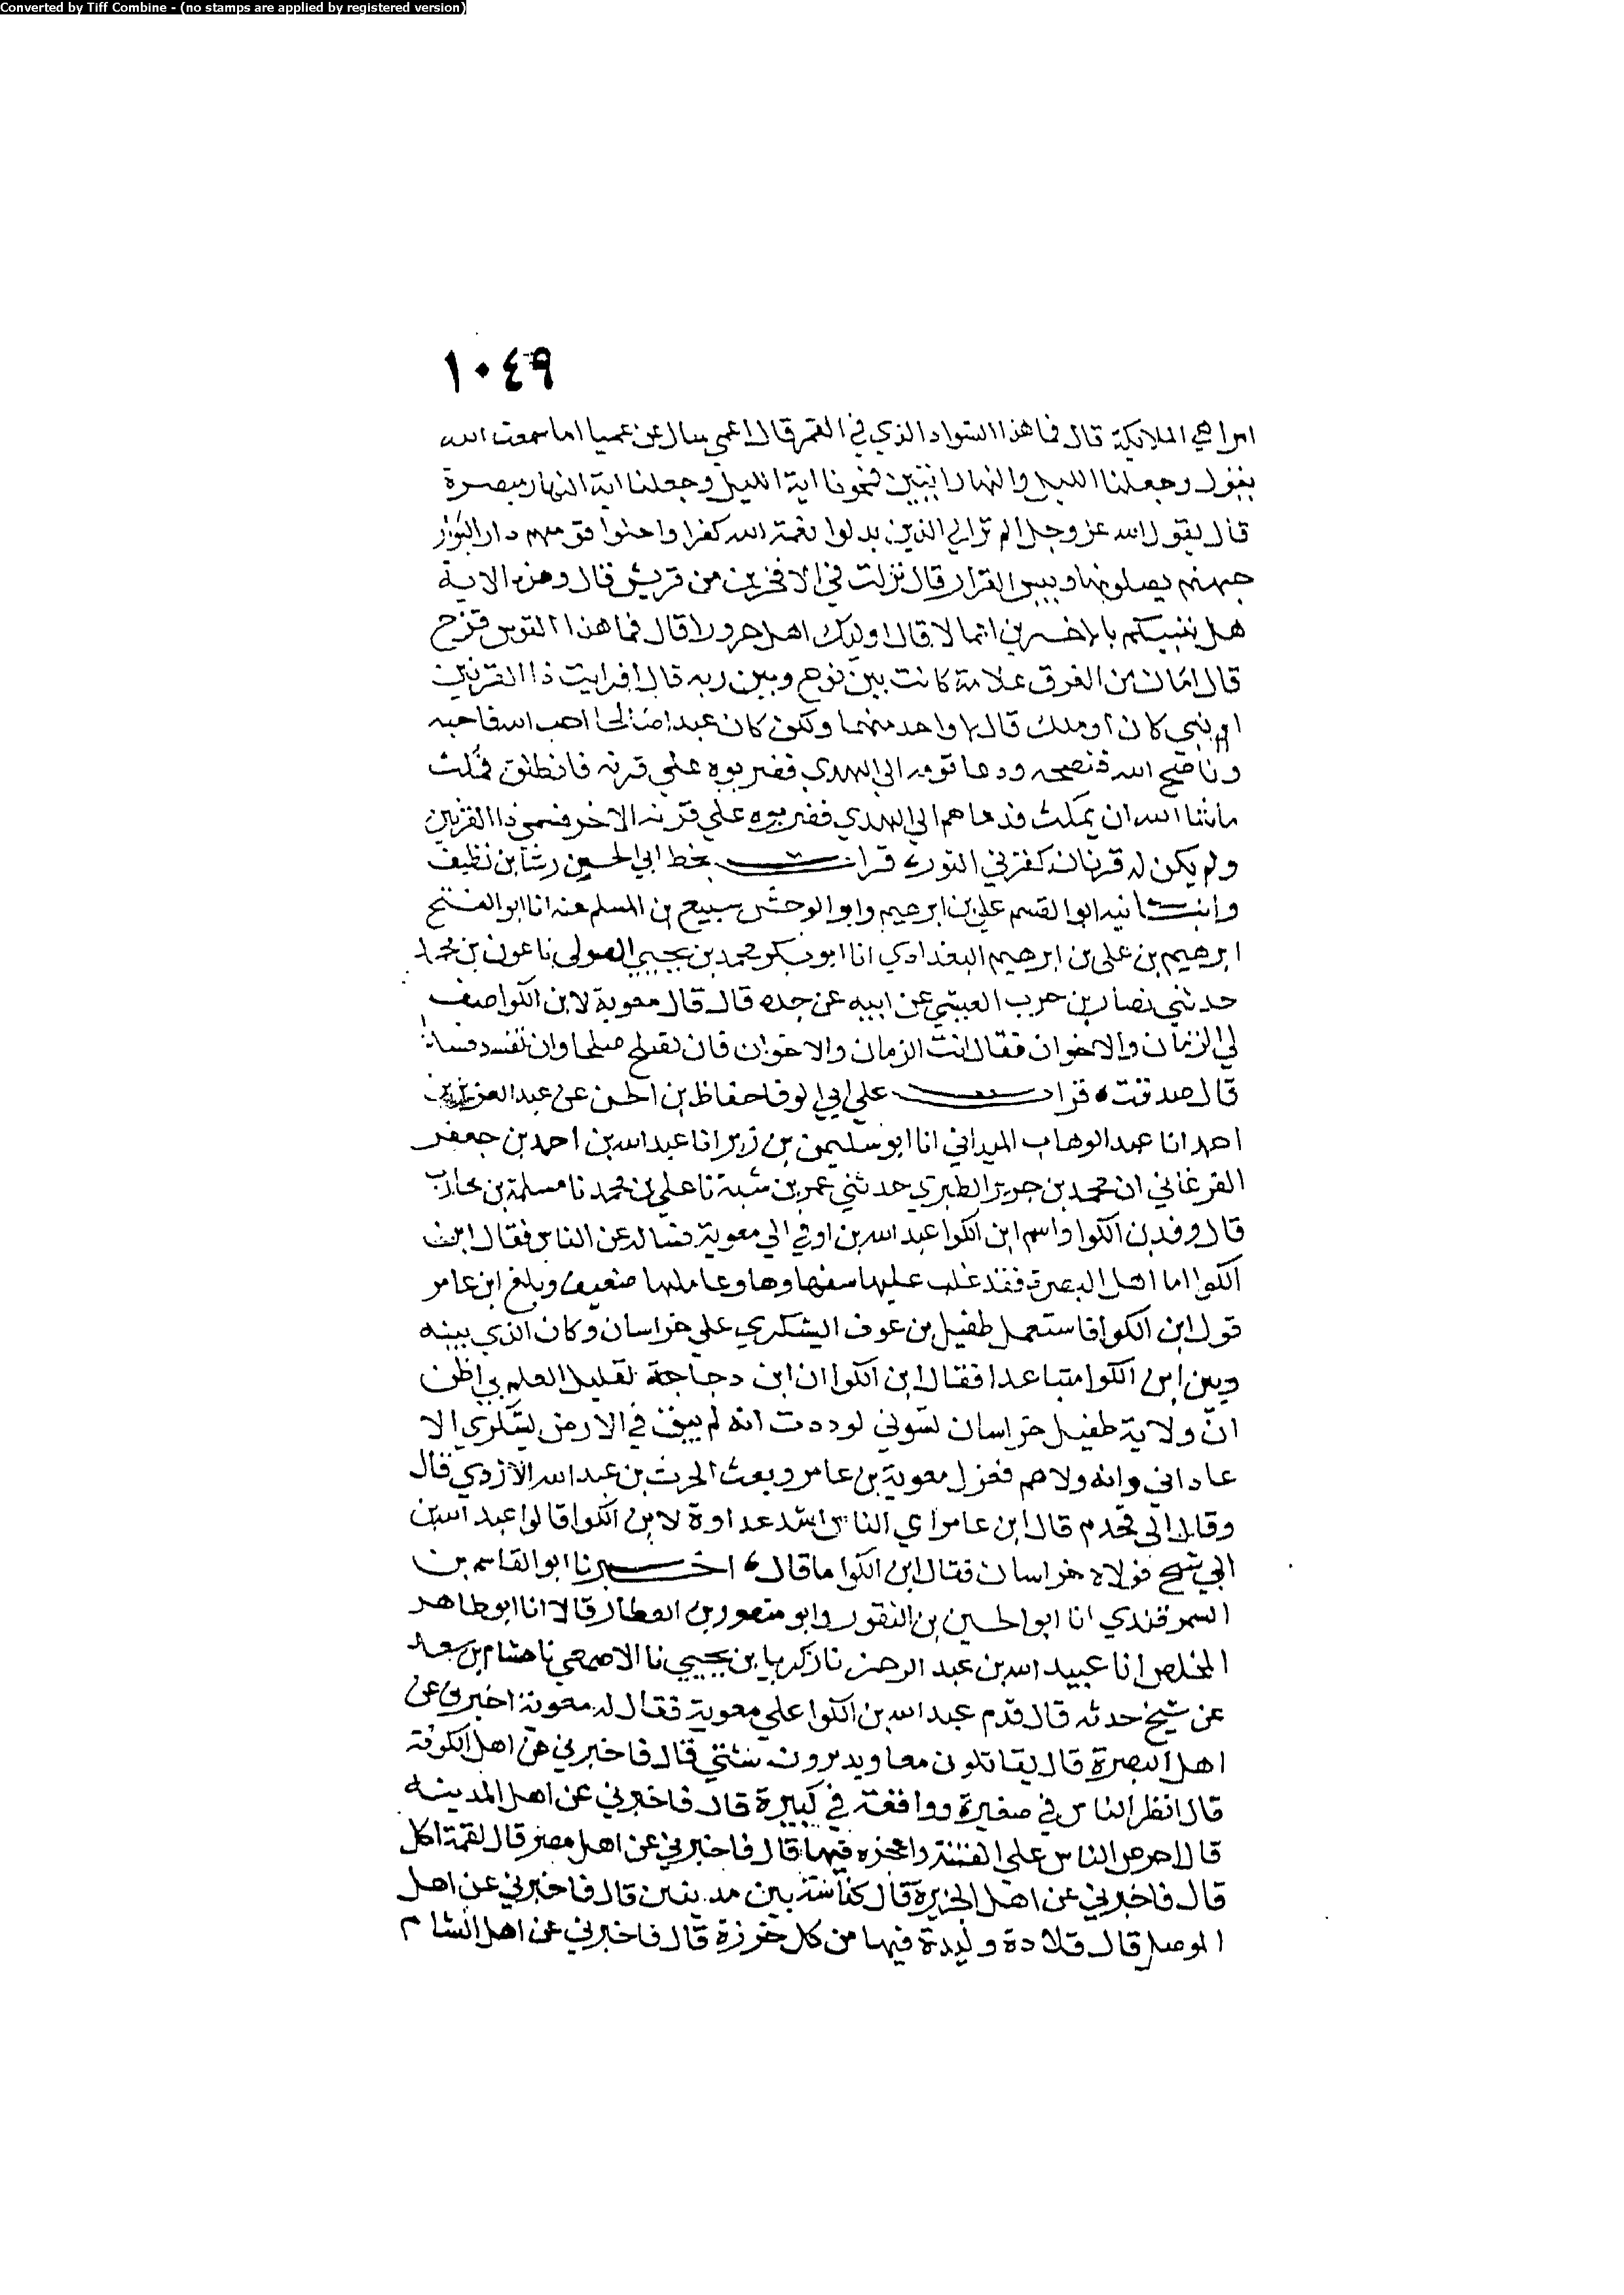 Converted by Tiff Combine - (no stamps are applied by registered version)
١٠٤٩
امرا هي الملايكة قال فما هذا السواد الذي في القمر قال اعمي سال عن عميا اما سمعت الله
يقول وجعلنا الليل والنهار ايتين فمحونا اية الليل وجعلنا اية النهار مبصرة
قال يقول الله عز وجل الم تر الي الذين بدلوا نعمة الله كفرا واحلوا قومهم دار البوار
جهنم يصلونها وبيس القرار قال نزلت في الافجرين من قريش قال وهذه الاية
هل ننبيكم بالاخسرين اعمالا قال اوليك اهل حرورا قال فما هذا القوس قزح
قال امان من الغرق علامة كانت بين نوح وبين ربه قال افرايت ذا القرنين
ام نبي كان او ملك قال لا واحد منهما ولكن كان عبدا صالحا احب الله فاحبه
وناصح الله فنصحه ودعا قومه الي الهدي فضربوه علي قرنه فانطلق فمكث
ماشا الله ان يمكث فدعاهم الي الهدي فضربوه علي قرنه الاخر فسمي ذا القرنين
ولم يكن له قرنان كقرني الثور قرات بخط ابي الحسين رشا بن نظيف
وانبانيه ابو القسم علي بن ابرهيم وابو الوحش سبيع بن المسلم عنه انا ابو الفتح
ابرهيم بن علي بن ابرهيم البغدادي انا ابو بكر محمد بن يحيي الصولي نا عون بن محمد
حدثني نصار بن حرب العبيني عن ابيه عن جده قال قال معوية لابن الكوا صف
لي الزمان والاخوان فقال انت الزمان والاخوان فان تصلح صلحا وان تفسد فسدا
قال صدقت قرات علي ابي الوفا حفاظ بن الحسن عن عبد العزيز بن
احمد انا عبد الوهاب الميداني انا ابو سليمن بن زبر انا عبد الله بن احمد بن جعفر
الفرغاني انا محمد بن جرير الطبري حدثني عمر بن شبة نا علي بن محمد نا مسلمة بن محارب
قال وفد بن الكوا واسم ابن الكوا عبد الله بن اوفي الي معوية فساله عن الناس فقال ابن
الكوا اما اهل البصرة فقد غلب عليها سفهاوها وعاملها ضعيف وبلغ ابن عامر
قول ابن الكوا فاستعمل طفيل بن عوف اليشكري علي خراسان وكان الذي بينه
وبين ابن الكوا متباعدا فقال ابن الكوا ان ابن دجاجة لقليل العلم بي اظن
ان ولاية طفيل خراسان تسوني لوددت انه لم يبق في الارض يشكري الا
عاداني وانه ولاهم فعزل معوية بن عامر وبعث الحرث بن عبد الله الازدي قال
وقال لي قحذم قال ابن عامر اي الناس اشد عداوة لابن الكوا قالوا عبد الله بن
ابي شيخ فولاه خراسان فقال ابن الكوا ما قال اخبرنا ابو القاسم بن
السمرقندي انا ابو الحسين بن النقور وابو منصور بن العطار قالا انا ابو طاهر
المخلص انا عبيد الله بن عبد الرحمن نا زكريا بن يحيي نا الاصمعي نا هشام بن سعد
عن شيخ حدثه قال قدم عبد الله بن الكوا علي معوية فقال له معوية اخبرني عن
اهل البصرة قال يقاتلون معا ويدبرون شتي قال فاخبرني عن اهل الكوفة
قال انظر الناس في صغيرة وواقعه في كبيرة قال فاخبرني عن اهل المدينه
قال احرص الناس علي الفتنة واعجزه فيها قال فاخبرني عن اهل مصر قال لقمة اكل
قال فاخبرني عن اهل الجزيرة قال كناسة بين مدينتين قال فاخبرني عن اهل
الموصل قال قلادة وليدة فيها من كل خرزة قال فاخبرني عن اهل الشام